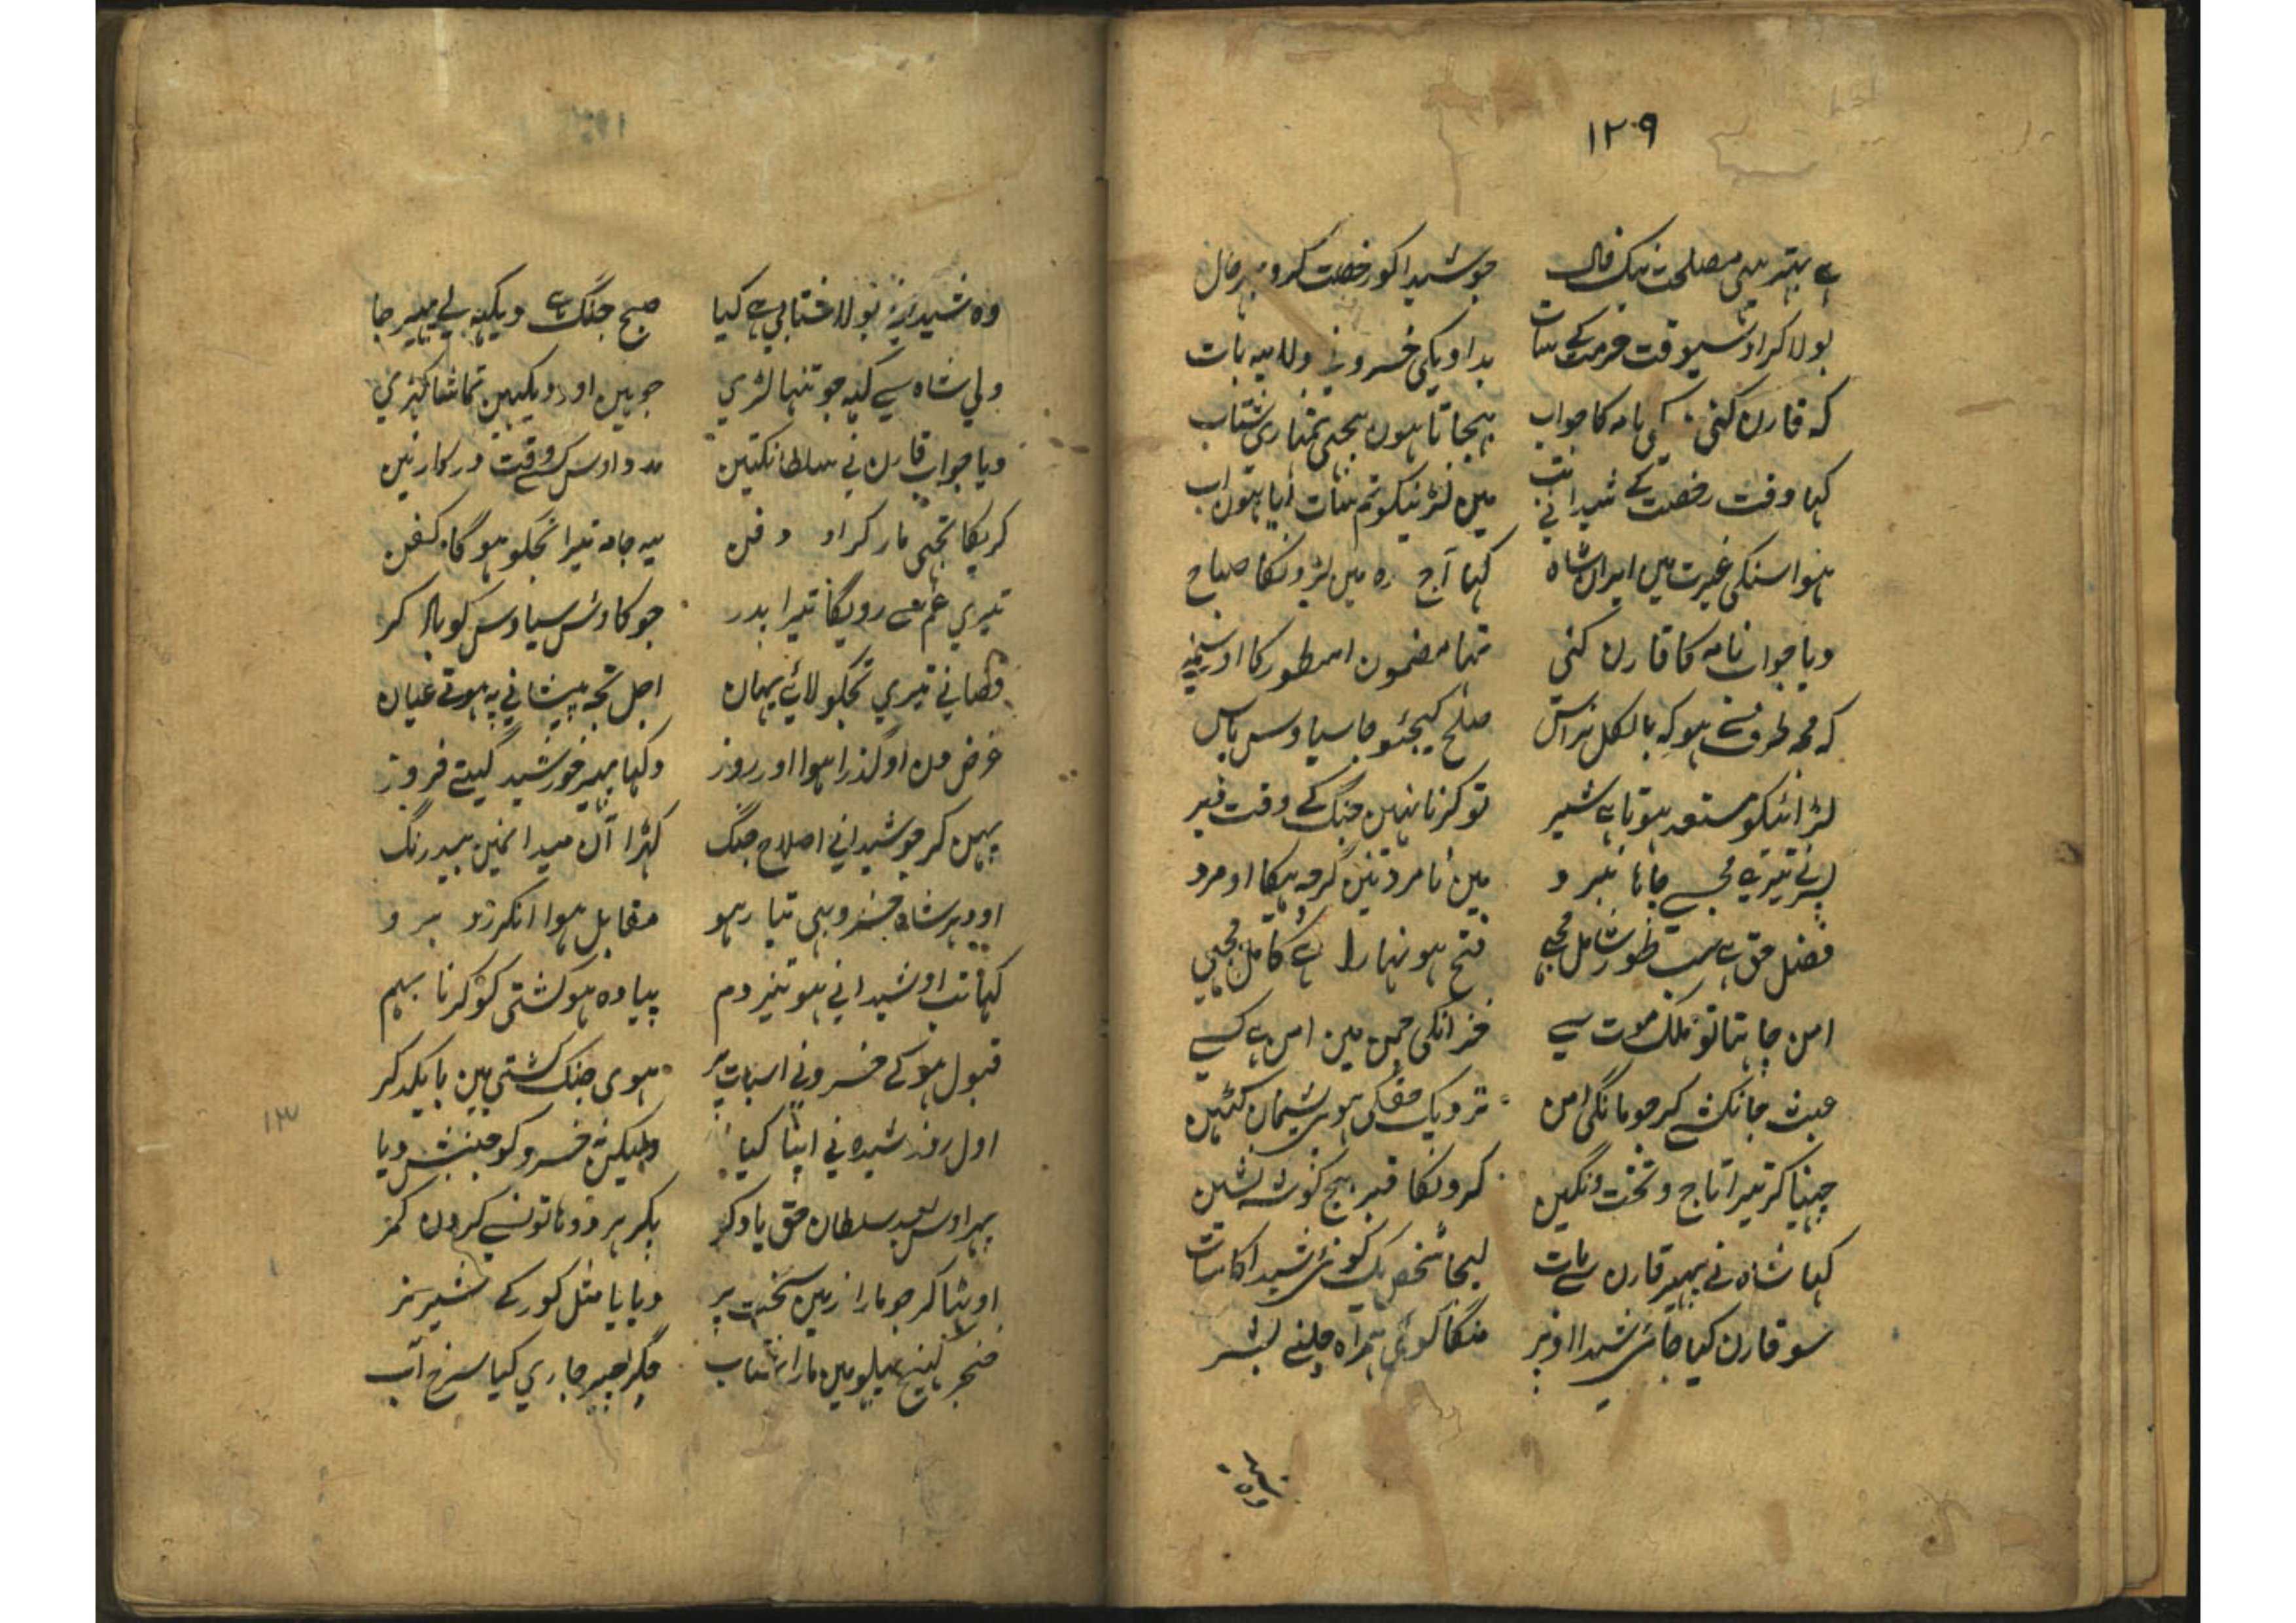 ۱۲۹
ہے بہتر یہی مصلحت نیک فال جو شیدا کو رخصت کرو بہر حال
بولا کر اوسیوقت خرمت کے سات بداویکی خسرونی ولا یہ بات
کہ قارن کنی نامہ کا جواب بہجاتا ہون بجی تمہاری شتاب
کہا وقت رخصت کے شیدا نی تب مین لڑنیکو تم سات آیا ہون اب
ہوا سنکی غیرت مین ایران شاہ کہا آج رہ مین لڑونکا صباح
دیا جواب نامہ کا قارن کنی تہا مضمون اسطور کا اوسنے
کہ مجہ طرف سے ہو کہ بالکل نراس صلح کیجئو جا سیاوس پاس
لڑائیکو مستعد ہوتا ہے شیر تو کرنا نہین جنگ کے وقت دیر
پسر نے تیرے مجسے چاہا نبرد مین نا مرد نین کرچہ ہیکا او مرد
فضل حق ہے سب طور شامل مجہے فتح ہونہارا ہے کامل مجہی
امن چاہتا تو ملک موت سے خزانکی چمن مین امن ہے کسے
عبث جانکشے کر جو مانگی امن نزدیک حق کی ہوی پشیمان کتئین
چہینا کر تیرا تاج و تخت و نگین کرونکا قبر بیچ گوشہ نشین
کہا شاہ نے پہیر قارن سے بات لیجا شخص یک کوئی شیدا کا سات
سو قارن کیا جا شیدا او پر منگا کوئی ہمراہ چلنے بشر
وہ شیدا
وہ شیدا نے بولا ختالی ہے کیا صبح جنگ ہے دیکہہ لے پہیر جا
ولی شاہ سے کہہ جو تنہا لڑی جو ہین اور دیکہین تماشا کہڑی
دیا جواب قارن نے سلطانکتین مدد اوس کے وقت درکار نین
کریکا تجہی مار کر او دفن یہ جامہ تیرا تجکو ہوگا کفن
تیری غم سے رویگا تیرا پدر جو کاوس سیاوس کو بالا کر
قضا نے تیری تجکو لائے یہان اجل تجہ پیشانی پہ ہوتے عیان
غرض دن او گذرا ہوا اور روز دکہا پہیر خورشید گیتے فروز
پہن کر جو شیدا نے اصلاح جنگ کہڑا آن میدانمین بیدرنگ
اودہر شاہ خسرو بہی تیار ہو مقابل ہوا انکر زد برو
کہا تب او شیدا نے ہو تیز دم پیادہ ہو کشتی کو کرنا بہم
قبول ہو کے خسرونے اسبات پر ہوی جنگ کشتی بہن با یکدگر
اول زور شیدہ نے اپنا کیا ولیکن نہ خسرو کو جنبش دیا
پہر اوس بعد سلطان حق یاد کر پکر ہر دو ہاتونسے گردن کمر
اوٹہا کر جو مارا زمین سخت پر دبایا مثل گور کے شیر نر
خنجر کہینچ پہلو مین مارا شتاب جگر چیر جاری کیا سرخ آب
۱۳